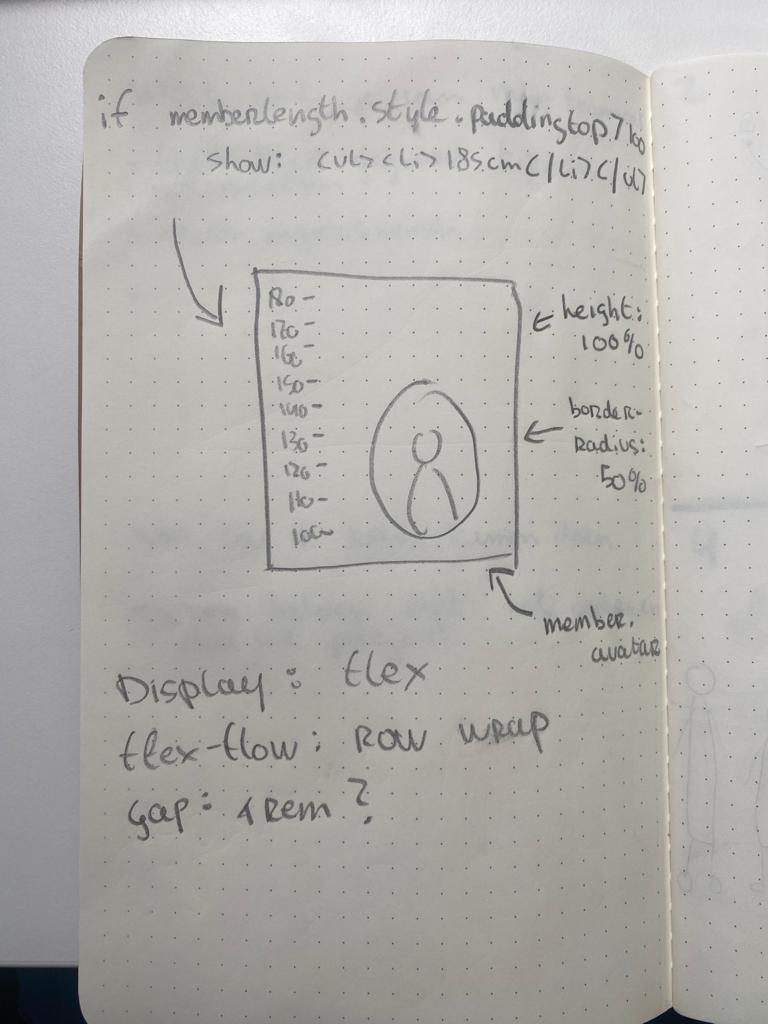 if memberlength.style.paddingtop > 100
show: <ul><li>185cm</li></ul>
180 -
170 -
160 -
150 -
140 -
130 -
120 -
110 -
100
height:
100%
border-
radius:
50%
member.
avatar
Display: flex
flex-flow: row wrap
gap: 1rem?